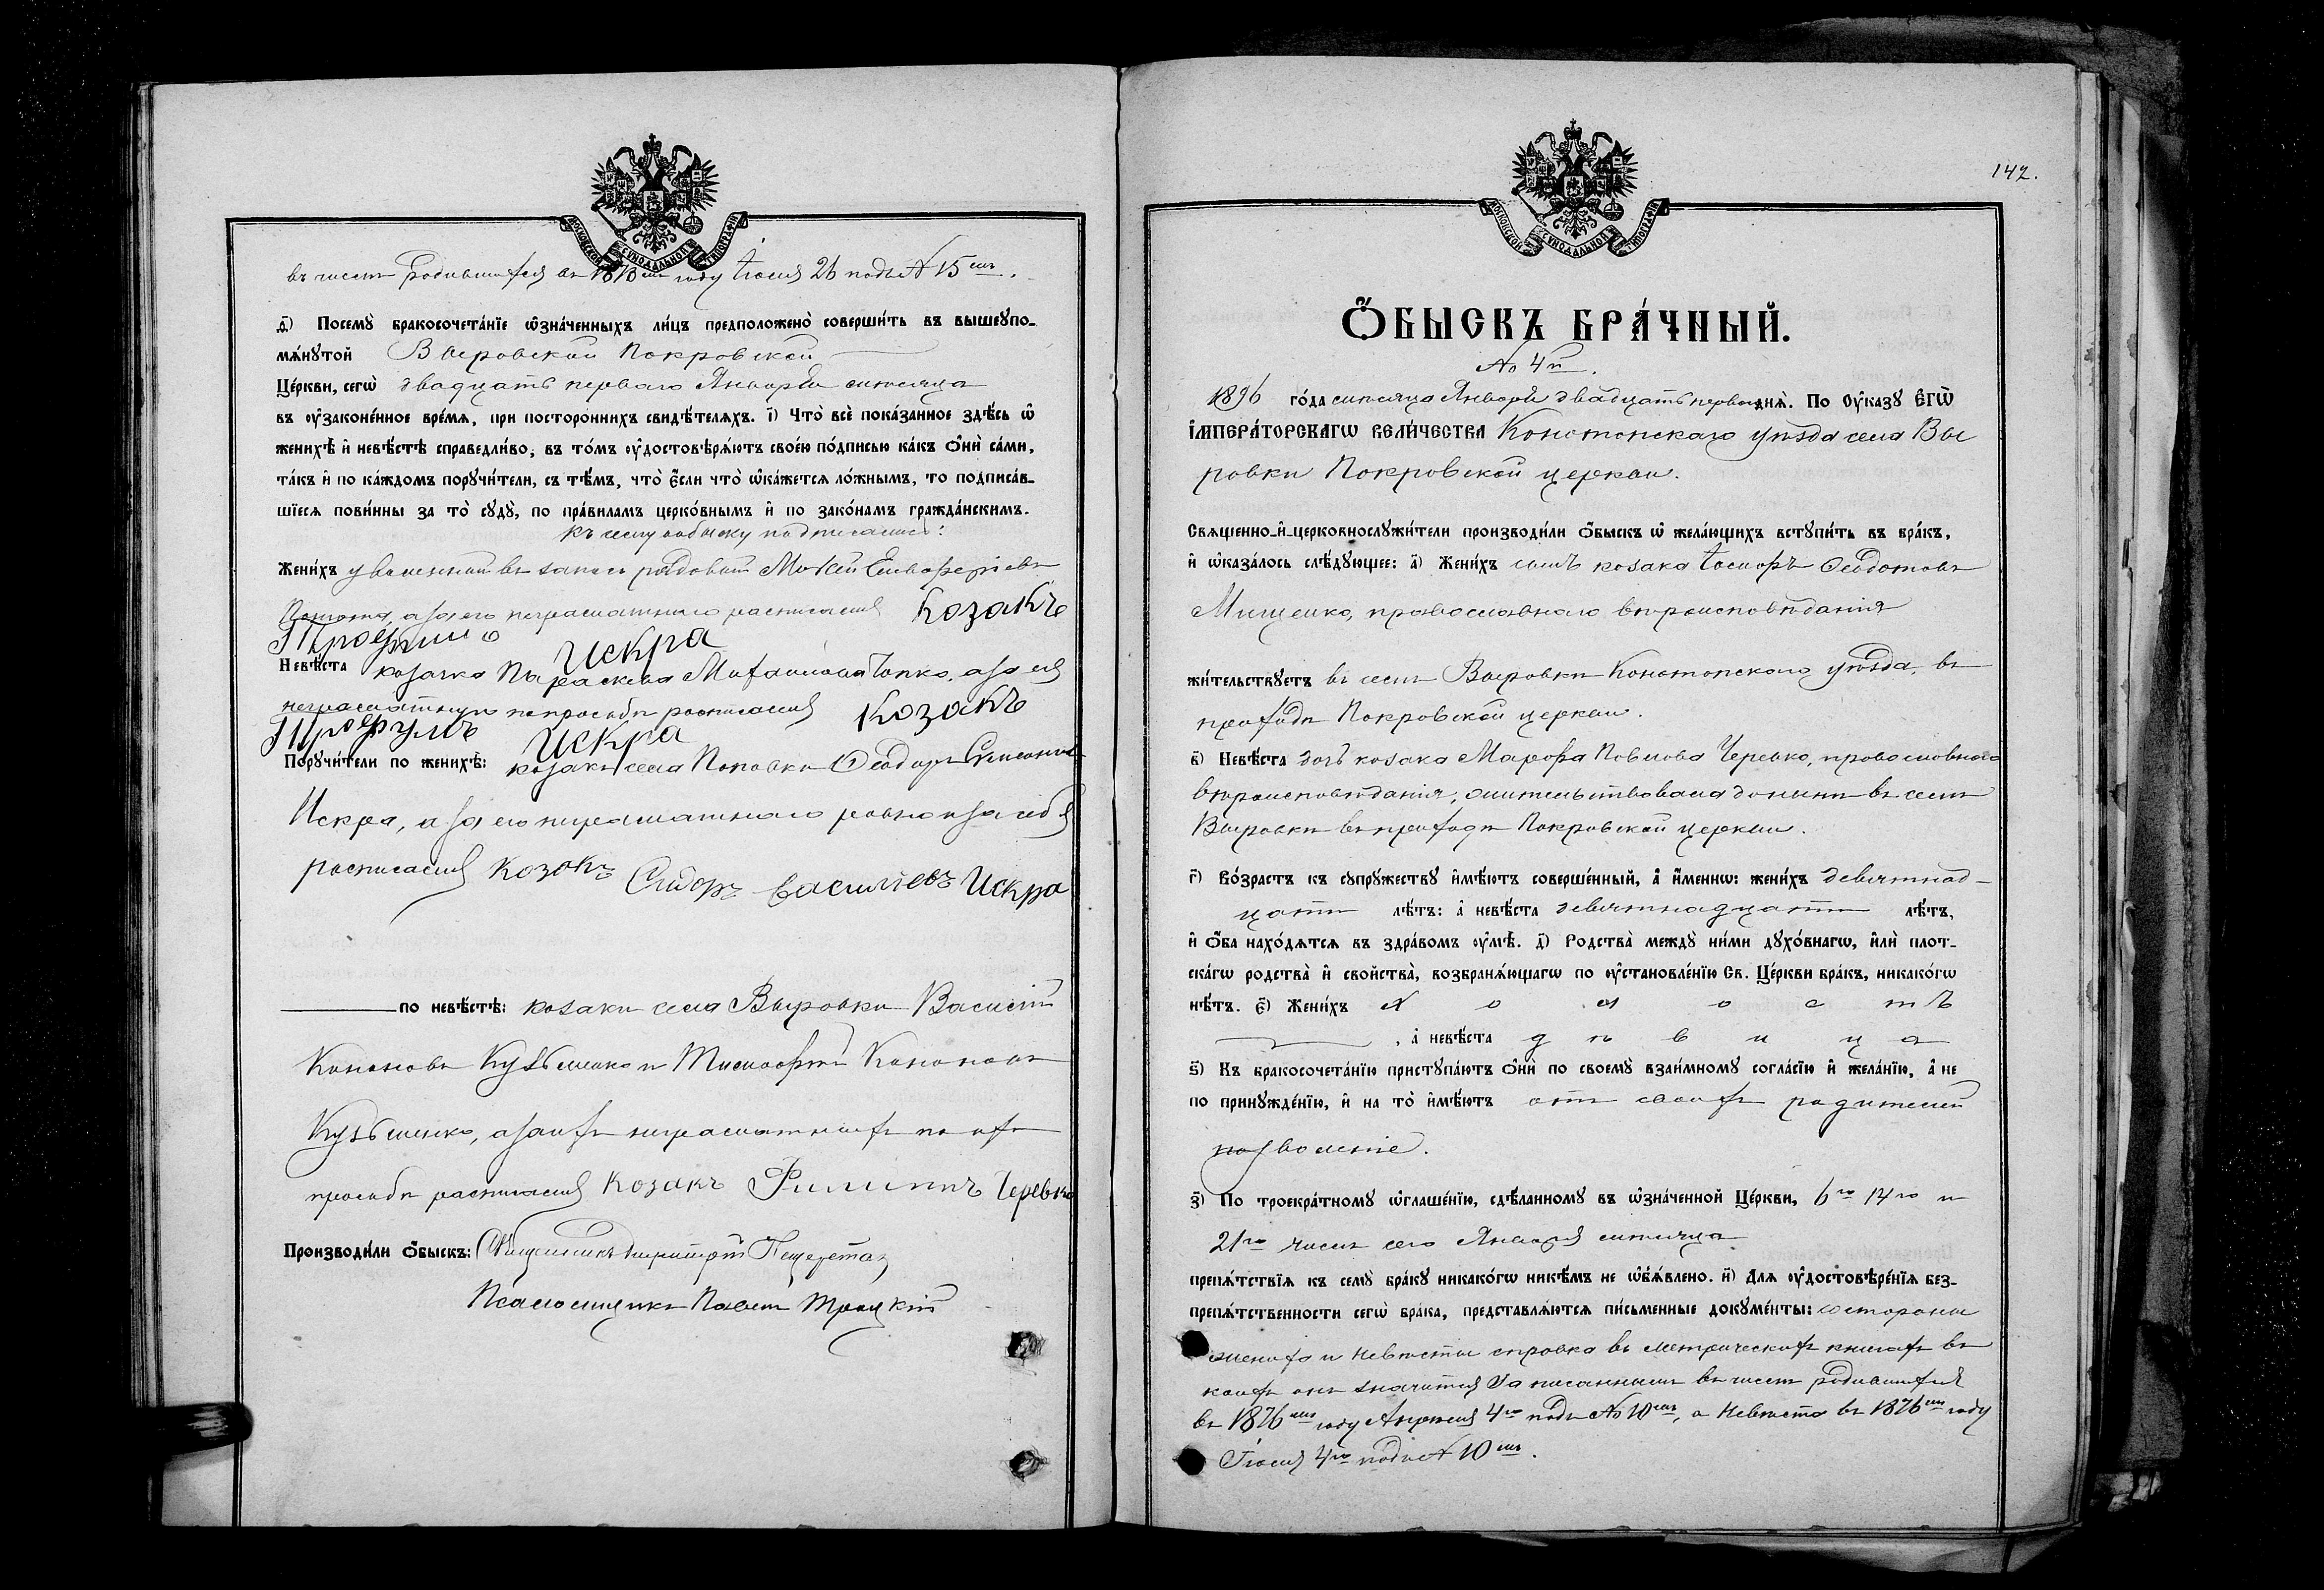 МОСКОВСКОЙ СУНОДАЛЬНОЙ ТИПОГРАФІИ
въ числѣ родившихся въ 1873мъ году Іюля 26 подъ № 15мъ.
д҃) Посемꙋ̀ бракосочета́нїе ѡ҆зна́ченныхъ ли́цъ предположено̀ соверши́ть въ вышеꙋпо-
мѧ́нꙋтой Выровской Покровской
Це́ркви, сегѡ̀ двадцать перваго Января мѣсяца
въ ᲂу҆зако́ненное вре́мѧ, при посторо́ннихъ свидѣ́телѧхъ. і҃) Что̀ всѐ пока́занное здѣ́сь ѡ҆
женихѣ̀ и҆ невѣ́стѣ справедли́во, въ то́мъ ᲂу҆достовѣрѧ́ютъ свое́ю по́дписью ка́къ ѻ҆нѝ са́ми,
та́къ и҆ по ка́ждомъ порꙋчи́тели, съ тѣ́мъ, что̀ є҆́сли что̀ ѡ҆ка́жетсѧ ло́жнымъ, то подписа́в-
шїесѧ пови́нны за то̀ сꙋдꙋ̀, по пра́виламъ церко́внымъ и҆ по зако́намъ гражда́нскимъ.
Къ сему обыску подписались:
Жени́хъ уволенный въ запасъ рядовой Мокій Елевферіевъ
а за его неграмотнаго расписался Козакъ
Трофимъ Искра
Невѣ́ста козачка Параскева Михаилова Чопко, а за ея
неграмотную по просьбѣ расписался Козакъ
Искра
Порꙋчи́тели по женихѣ̀: козаки села Поповки Ѳеодоръ
Искра, а за его неграмотнаго равно и за себя
расписался Козакъ Сидоръ Васильевъ Искра
по невѣ́стѣ: козаки села Выровки Василій
Кононовъ Кузьменко и Тимофей Кононовъ
Кузьменко, а за ихъ неграмотныхъ по ихъ
просьбѣ расписался Козакъ Филиппъ Черевко
Производи́ли ѻ҆́быскъ: Священникъ Димитрій
Псаломщикъ Павелъ Троицкій
142.
МОСКОВСКОЙ СУНОДАЛЬНОЙ ТИПОГРАФІИ
Ѻ҆́БЫСКЪ БРА́ЧНЫЙ.
№ 4й.
1896 го́да мѣсяца Января двадцать перваго днѧ̀. По ᲂу҆ка́зꙋ Є҆ГѠ̀
І҆МПЕРА́ТОРСКАГѠ ВЕЛИ́ЧЕСТВА Конотопскаго уѣзда села Вы
ровки Покровской церкви.
Свѧще́нно-и҆-церковнослꙋжи́тели производи́ли ѻ҆́быскъ ѡ҆ жела́ющихъ встꙋпи́ть въ бра́къ,
и҆ ѡ҆каза́лось слѣ́дꙋющее: а҃) Жени́хъ сынъ козака Іосифъ Ѳеодотовъ
Мищенко, православнаго вѣроисповѣданія
жи́тельствꙋетъ въ селѣ Выровки Конотопскаго уѣзда, въ
приходѣ Покровской церкви.
в҃) Невѣ́ста дочь козака Марѳа Павлова Черевко, православнаго
вѣроисповѣданія, жительствовала донынѣ въ селѣ
Выровки въ приходѣ Покровской церкви.
г҃) Во́зрастъ къ сꙋпрꙋ́жествꙋ и҆мѣ́ютъ соверше́нный, а҆ и҆́меннѡ: жени́хъ девятнад-
цати лѣ́тъ: а҆ невѣ́ста девятнадцати лѣ́тъ,
и҆ ѻ҆́ба нахо́дѧтсѧ въ здра́вомъ ᲂу҆мѣ̀. д҃) Родства̀ междꙋ̀ ни́ми дꙋхо́внагѡ, и҆лѝ плот-
ска́гѡ родства̀ и҆ свойства̀, возбранѧ́ющагѡ по ᲂу҆становле́нїю Св. Це́ркви бра́къ, никако́гѡ
нѣ́тъ. є҃) Жени́хъ холостъ
, а҆ невѣ́ста дѣвица
ѕ҃) Къ бракосочета́нїю пристꙋпа́ютъ ѻ҆нѝ по своемꙋ̀ взаи́мномꙋ согла́сїю и҆ жела́нїю, а҆ не
по принꙋжде́нїю, и҆ на то̀ и҆мѣ́ютъ отъ своихъ родителей
позволеніе.
з҃) По троекра́тномꙋ ѡ҆глаше́нїю, сдѣ́ланномꙋ въ ѡ҆зна́ченной Це́ркви, 6го 14го и
21го чиселъ сего Января мѣсяца
препѧ́тствїѧ къ семꙋ̀ бра́кꙋ никако́гѡ никѣ́мъ не ѡ҆б̾ѧ́влено. и҃) Длѧ ᲂу҆достовѣре́нїѧ без-
препѧ́тственности сегѡ̀ бра́ка, представлѧ́ютсѧ пи́сьменные докꙋме́нты: со стороны
жениха и невѣсты справка въ метрическихъ книгахъ въ
коихъ онъ значится записаннымъ въ числѣ родившихся
въ 1876мъ году Апрѣля 4го подъ № 10мъ, а невѣста въ 1876мъ году
Іюля 4го подъ № 10мъ.